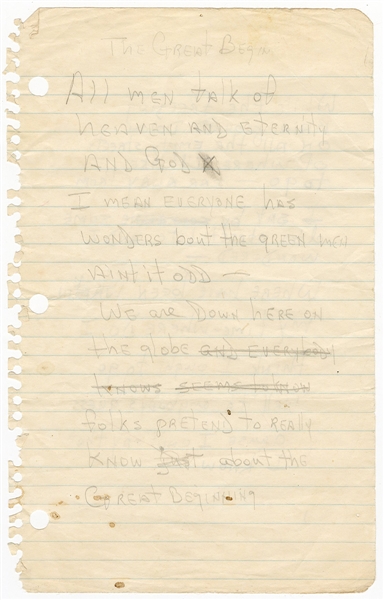 The Great Begin
All men talk of
heaven and eternity
and God
I mean everyone has
wonders bout the green men
Aint it odd —
We are down here on
the globe and everybody
knows seems to know
folks pretend to really
know about the
Great Beginning